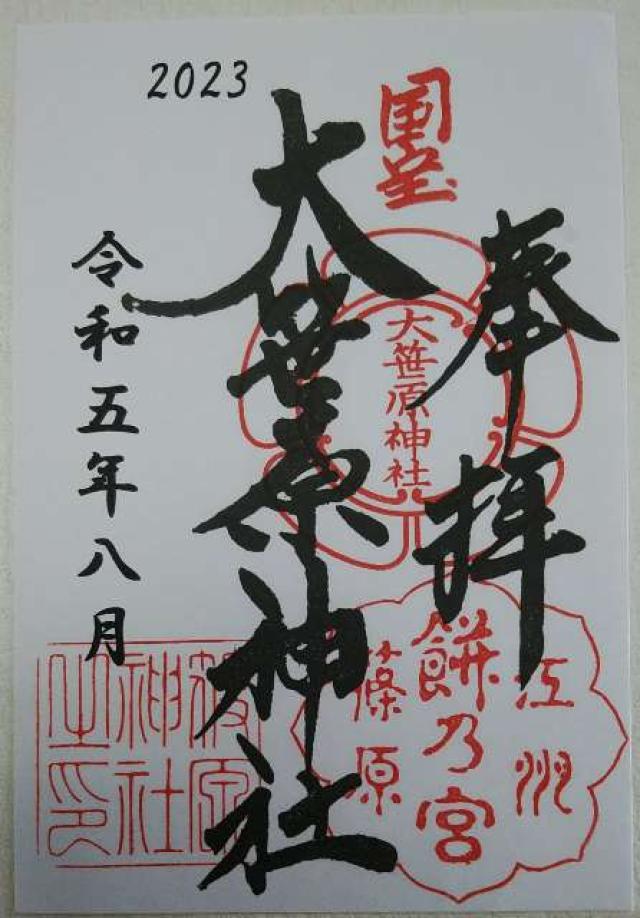 2023
国宝
奉拝
大笹原神社
大笹原神社
令和五年八月
江州
餅乃宮
篠原
神社
之印